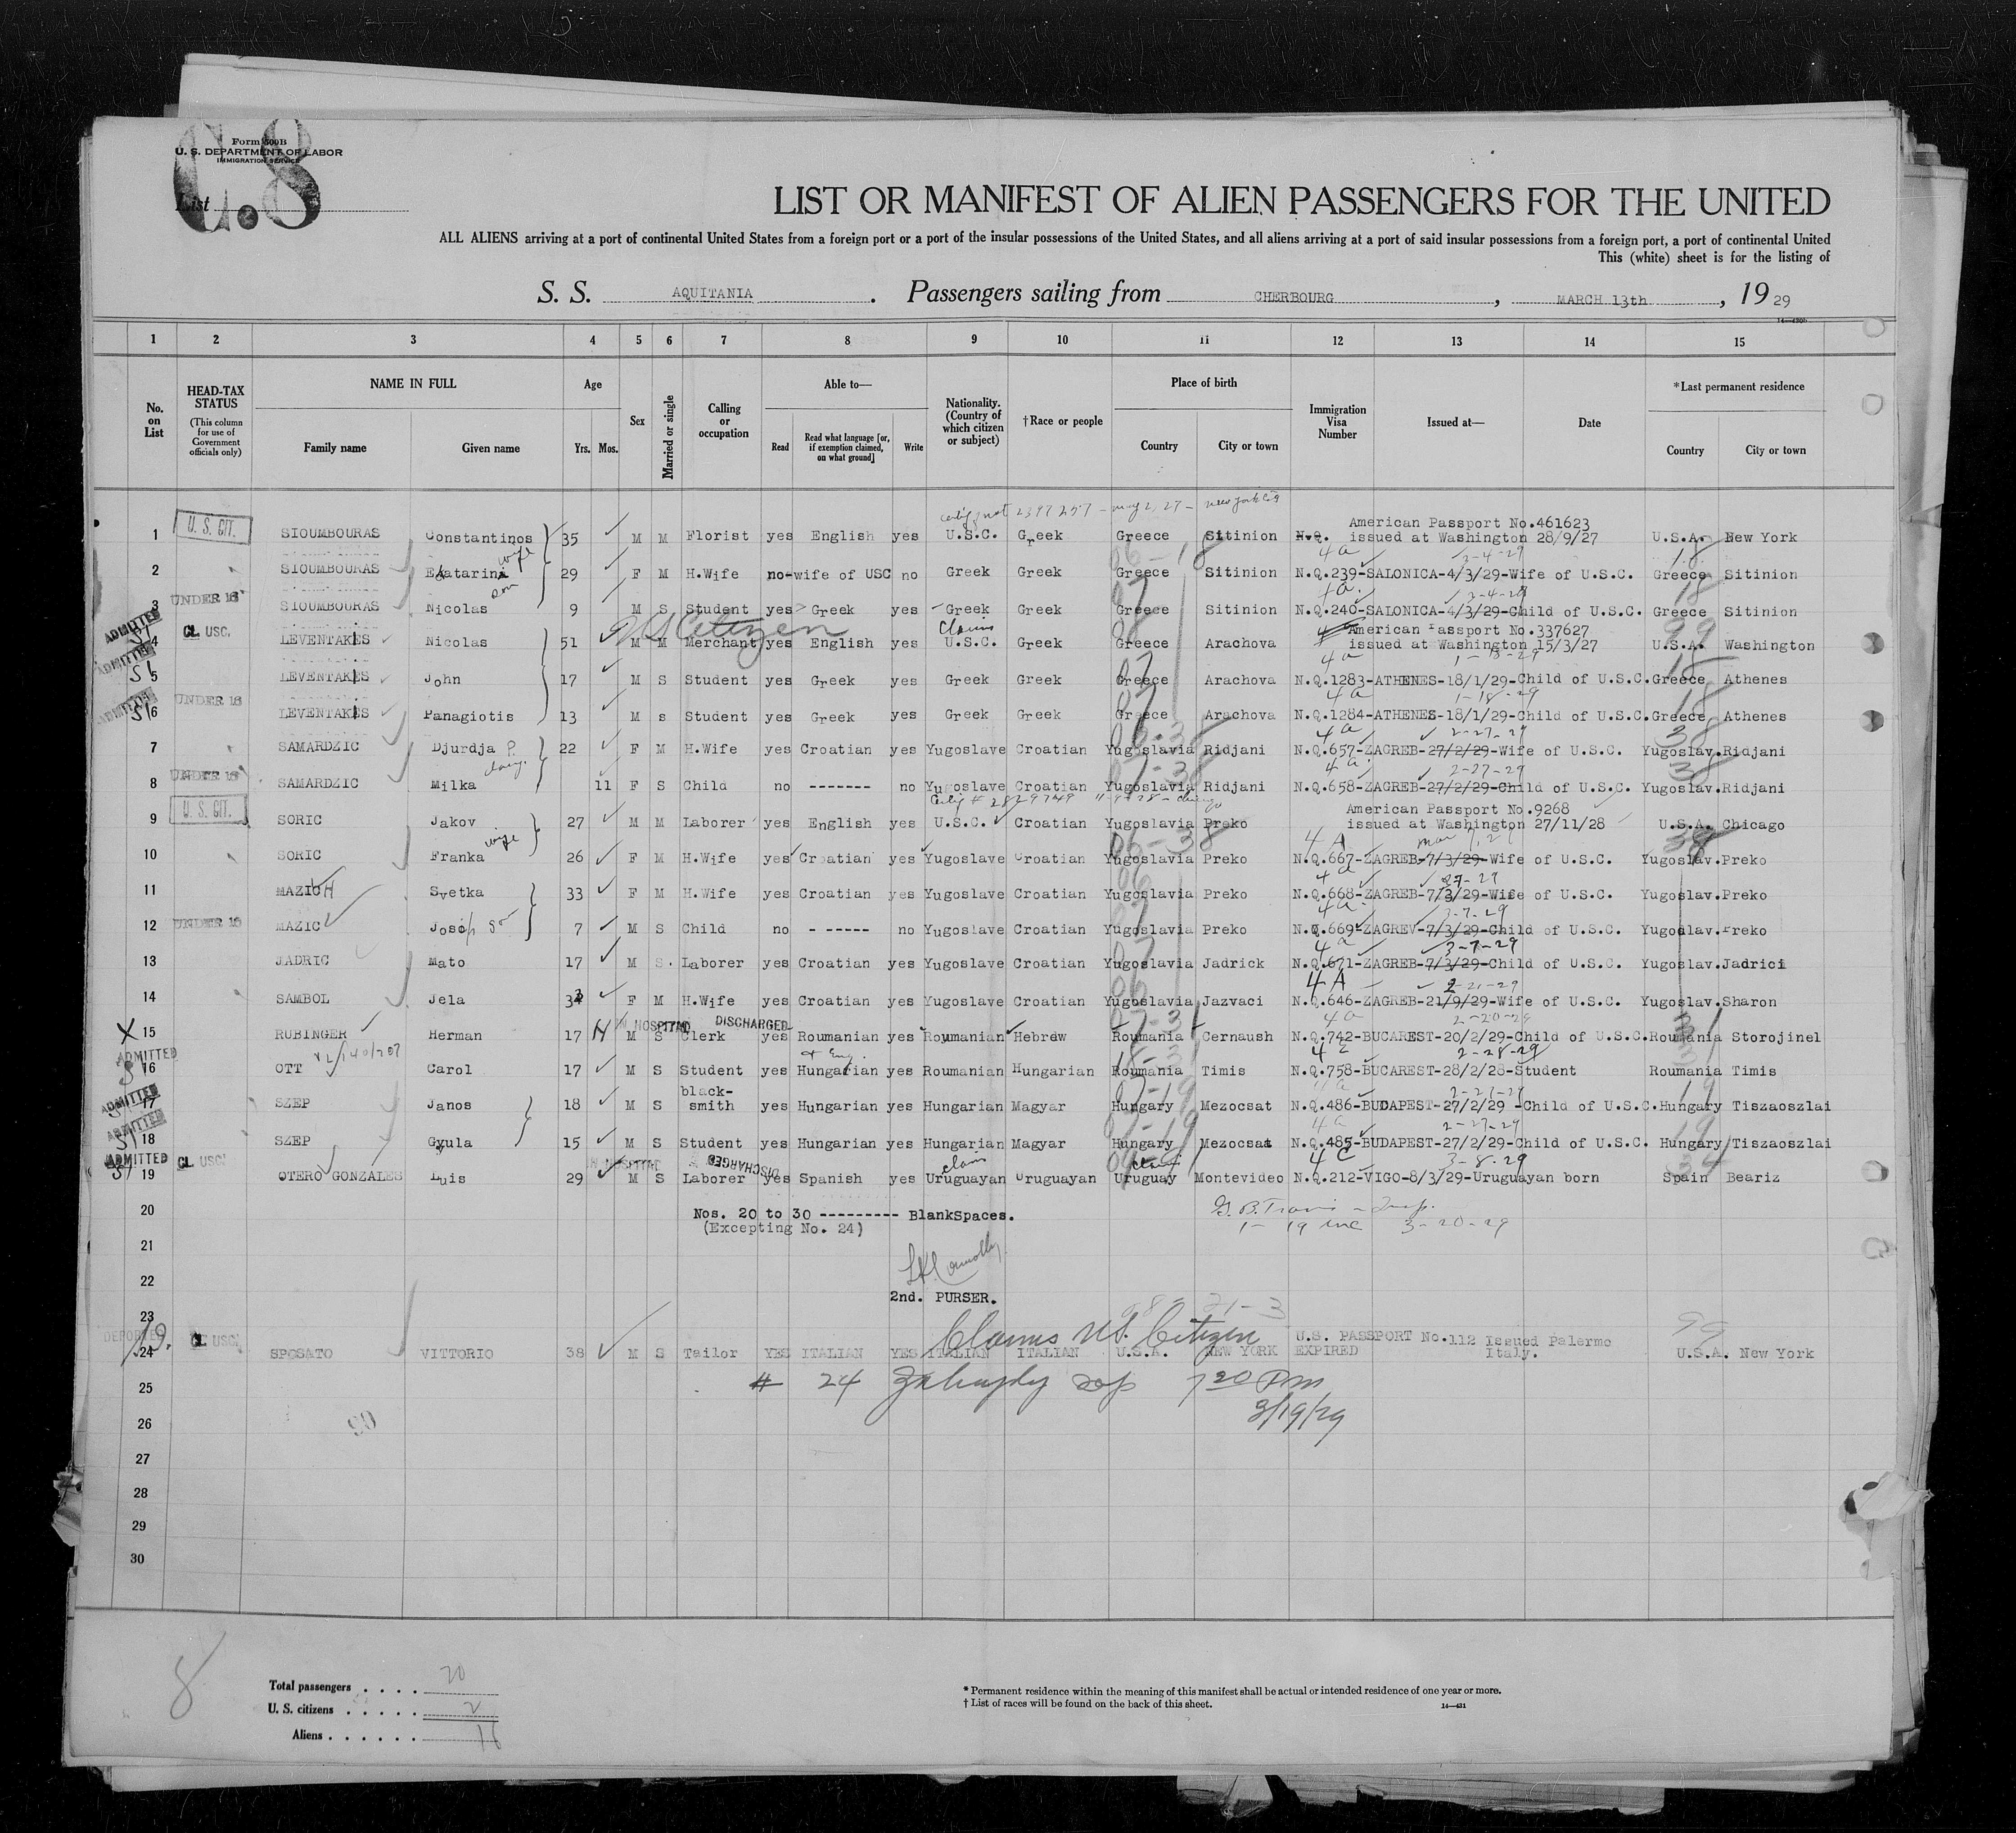 C.8
Form 500B
U. S. DEPARTMENT OF LABOR
IMMIGRATION SERVICE
List
LIST OR MANIFEST OF ALIEN PASSENGERS FOR THE UNITED
ALL ALIENS arriving at a port of continental United States from a foreign port or a port of the insular possessions of the United States, and all aliens arriving at a port of said insular possessions from a foreign port, a port of continental United
This (white) sheet is for the listing of
S. S. AQUITANIA. Passengers sailing from CHERBOURG, MARCH 13th, 19 29
1 2 3 4 5 6 7 8 9 10 11 12 13 14 15
No. on List
HEAD-TAX STATUS (This column for use of Government officials only)
NAME IN FULL
Family name Given name
Age Yrs. Mos.
Sex
Married or single
Calling or occupation
Able to—
Read Read what language [or, if exemption claimed, on what ground] Write
Nationality. (Country of which citizen or subject)
†Race or people
Place of birth
Country City or town
Immigration Visa Number
Issued at—
Date
*Last permanent residence
Country City or town
2397257 - may 2, 27 - New York City
American Passport No.461623
1 U.S. CIT. SIOUMBOURAS Constantinos 35 M M Florist yes English yes U.S.C. Greek Greece Sitinion N.Q. issued at Washington 28/9/27 U.S.A. New York
wife 06-18 4a 3-4-29 18
2 SIOUMBOURAS Ekatarini 29 F M H.Wife no-wife of USC no Greek Greek Greece Sitinion N.Q.239-SALONICA-4/3/29-Wife of U.S.C. Greece Sitinion
son 07 4a. 3-4-29 18
3 UNDER 16 SIOUMBOURAS Nicolas 9 M S Student yes Greek yes Greek Greek Greece Sitinion N.Q.240-SALONICA-4/3/29-Child of U.S.C. Greece Sitinion
ADMITTED CL USC. US Citizen claims American Passport No.337627 99
SI 4 LEVENTAKES Nicolas 51 M M Merchant yes English yes U.S.C. Greek Greece Arachova issued at Washington 15/3/27 U.S.A. Washington
ADMITTED 07 4a 1-18-29 18
SI 5 LEVENTAKES John 17 M S Student yes Greek yes Greek Greek Greece Arachova N.Q.1283-ATHENES-18/1/29-Child of U.S.C. Greece Athenes
ADMITTED UNDER 16 07 4a 1-18-29 18
SI 6 LEVENTAKES Panagiotis 13 M s Student yes Greek yes Greek Greek Greece Arachova N.Q.1284-ATHENES-18/1/29-Child of U.S.C. Greece Athenes
06-38 4a 2-27-29 38
7 SAMARDZIC Djurdja P. 22 F M H.Wife yes Croatian yes Yugoslave Croatian Yugoslavia Ridjani N.Q.657-ZAGREB-27/2/29-Wife of U.S.C. Yugoslav. Ridjani
UNDER 16 07-38 4a. 2-27-29 38
8 SAMARDZIC Milka 11 F S Child no ------- no Yugoslave Croatian Yugoslavia Ridjani N.Q.658-ZAGREB-27/2/29-Child of U.S.C. Yugoslav. Ridjani
American Passport No.9268
9 U.S. CIT. SORIC Jakov 27 M M Laborer yes English yes U.S.C. Croatian Yugoslavia Preko issued at Washington 27/11/28 U.S.A. Chicago
wife 06-38 4A 38
10 SORIC Franka 26 F M H.Wife yes Croatian yes Yugoslave Croatian Yugoslavia Preko N.Q.667-ZAGREB-7/3/29-Wife of U.S.C. Yugoslav. Preko
06 4a
11 MAZICH Svetka 33 F M H.Wife yes Croatian yes Yugoslave Croatian Yugoslavia Preko N.Q.668-ZAGREB-7/3/29-Wife of U.S.C. Yugoslav. Preko
07 4a. 3-7-29
12 UNDER 16 MAZIC Josip 7 M S Child no - ----- no Yugoslave Croatian Yugoslavia Preko N.Q.669-ZAGREV-7/3/29-Child of U.S.C. Yugoslav. Preko
07 4a 3-7-29
13 JADRIC Mato 17 M S. Laborer yes Croatian yes Yugoslave Croatian Yugoslavia Jadrick N.Q.671-ZAGREB-7/3/29-Child of U.S.C. Yugoslav. Jadrici
06 4A 2-21-29
14 SAMBOL Jela F M H.Wife yes Croatian yes Yugoslave Croatian Yugoslavia Jazvaci N.Q.646-ZAGREB-21/9/29-Wife of U.S.C. Yugoslav. Sharon
IN HOSPITAL DISCHARGED 07-31 4a 2-20-29 31
X 15 RUBINGER Herman 17 H M S Clerk yes Roumanian yes Roumanian Hebrew Roumania Cernaush N.Q.742-BUCAREST-20/2/29-Child of U.S.C. Roumania Storojinel
ADMITTED & Eng. 4E 2-28-29 31
SI 16 OTT Carol 17 M S Student yes Hungarian yes Roumanian Hungarian Roumania Timis N.Q.758-BUCAREST-28/2/28-Student Roumania Timis
ADMITTED black- 07-19 4a 2-27-29 19
17 SZEP Janos 18 M S smith yes Hungarian yes Hungarian Magyar Hungary Mezocsat N.Q.486-BUDAPEST-27/2/29 -Child of U.S.C. Hungary Tiszaoszlai
ADMITTED 07-19 4a 2-27-29 19
SI 18 SZEP Gyula 15 M S Student yes Hungarian yes Hungarian Magyar Hungary Mezocsat N.Q.485-BUDAPEST-27/2/29-Child of U.S.C. Hungary Tiszaoszlai
ADMITTED CL USC. IN HOSPITAL DISCHARGED claim claim 4C 3-8-29 34
SI 19 OTERO GONZALES Luis 29 M S Laborer yes Spanish yes Uruguayan Uruguayan Uruguay Montevideo N.Q.212-VIGO-8/3/29-Uruguayan born Spain Beariz
20 Nos. 20 to 30 --------- BlankSpaces.
(Excepting No. 24)
1- 19 inc 3-20-29
21
22
2nd. PURSER.
23
DEPORTED CL USC. Claims U.S. Citizen U.S. PASSPORT No.112 Issued Palermo Italy. 99
24 SPOSATO VITTORIO 38 M S Tailor YES ITALIAN YES ITALIAN ITALIAN U.S.A. NEW YORK EXPIRED U.S.A. New York
25 # 24 7 20 PM
3/19/29
26
27
28
29
30
8
Total passengers . . . . 20
U. S. citizens . . . . . 2
Aliens . . . . . . 18
* Permanent residence within the meaning of this manifest shall be actual or intended residence of one year or more.
† List of races will be found on the back of this sheet.
14—431